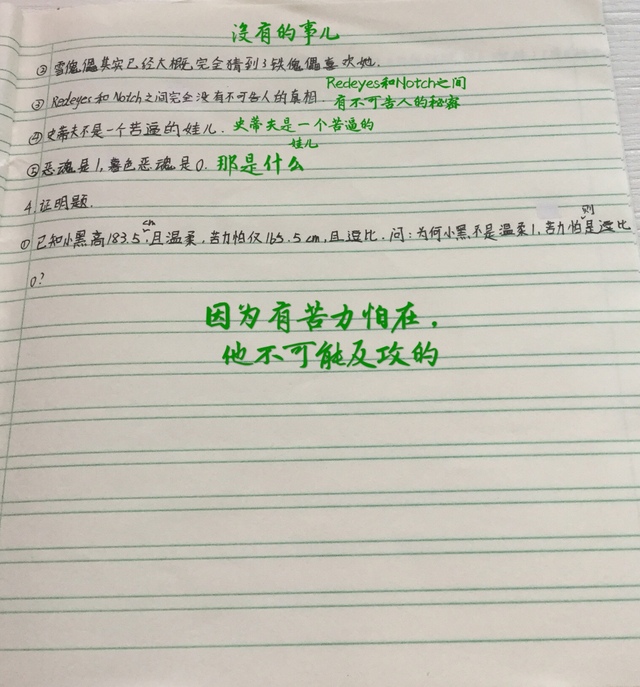 没有的事儿
②雪傀儡其实已经大概完全猜到了铁傀儡喜欢她.
Redeyes和Notch之间
③Redeyes和Notch之间完全没有不可告人的真相.
有不可告人的秘密
④史蒂夫不是一个苦逼的娃儿. 史蒂夫是一个苦逼的
娃儿
⑤恶魂是1,暮色恶魂是0. 那是什么
4.证明题.
cm
则
①已知小黑高183.5,且温柔,苦力怕仅165.5cm,且逗比.问:为何小黑不是温柔1,苦力怕是逗比
0?
因为有苦力怕在,
他不可能反攻的